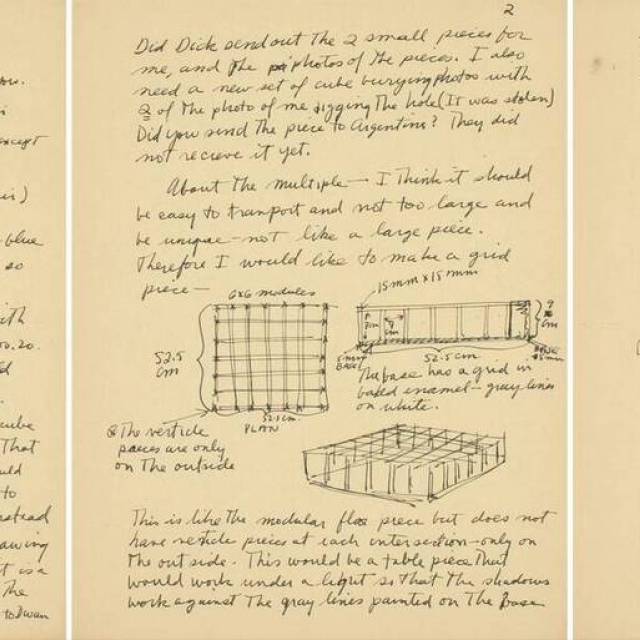 ow.
except
is)
blue
so
ith
00.20.
cube
That
uld
to
nstead
awing
t is a
The
to Dwan
2
Did Dick send out the 2 small pieces for
me, and the photos of the pieces. I also
need a new set of cube burying photos with
2 of the photo of me digging the hole (It was stolen)
Did you send the piece to Argentine? They did
not recieve it yet.
About the multiple — I think it should
be easy to tranport and not too large and
be unique — not like a large piece.
Therefore I would like to make a grid
piece —
6x6 modules
52.5
cm
52.5 cm.
PLAN
The verticle
pieces are only
on the outside
15mm x 15mm
7 cm
5mm
BASE
52.5 cm
BASE
The base has a grid in
baked enamel — gray lines
on white.
This is like the modular floor piece but does not
have verticle pieces at each intersection — only on
the outside. This would be a table piece that
would work under a light so that the shadows
work against the gray lines painted on the base